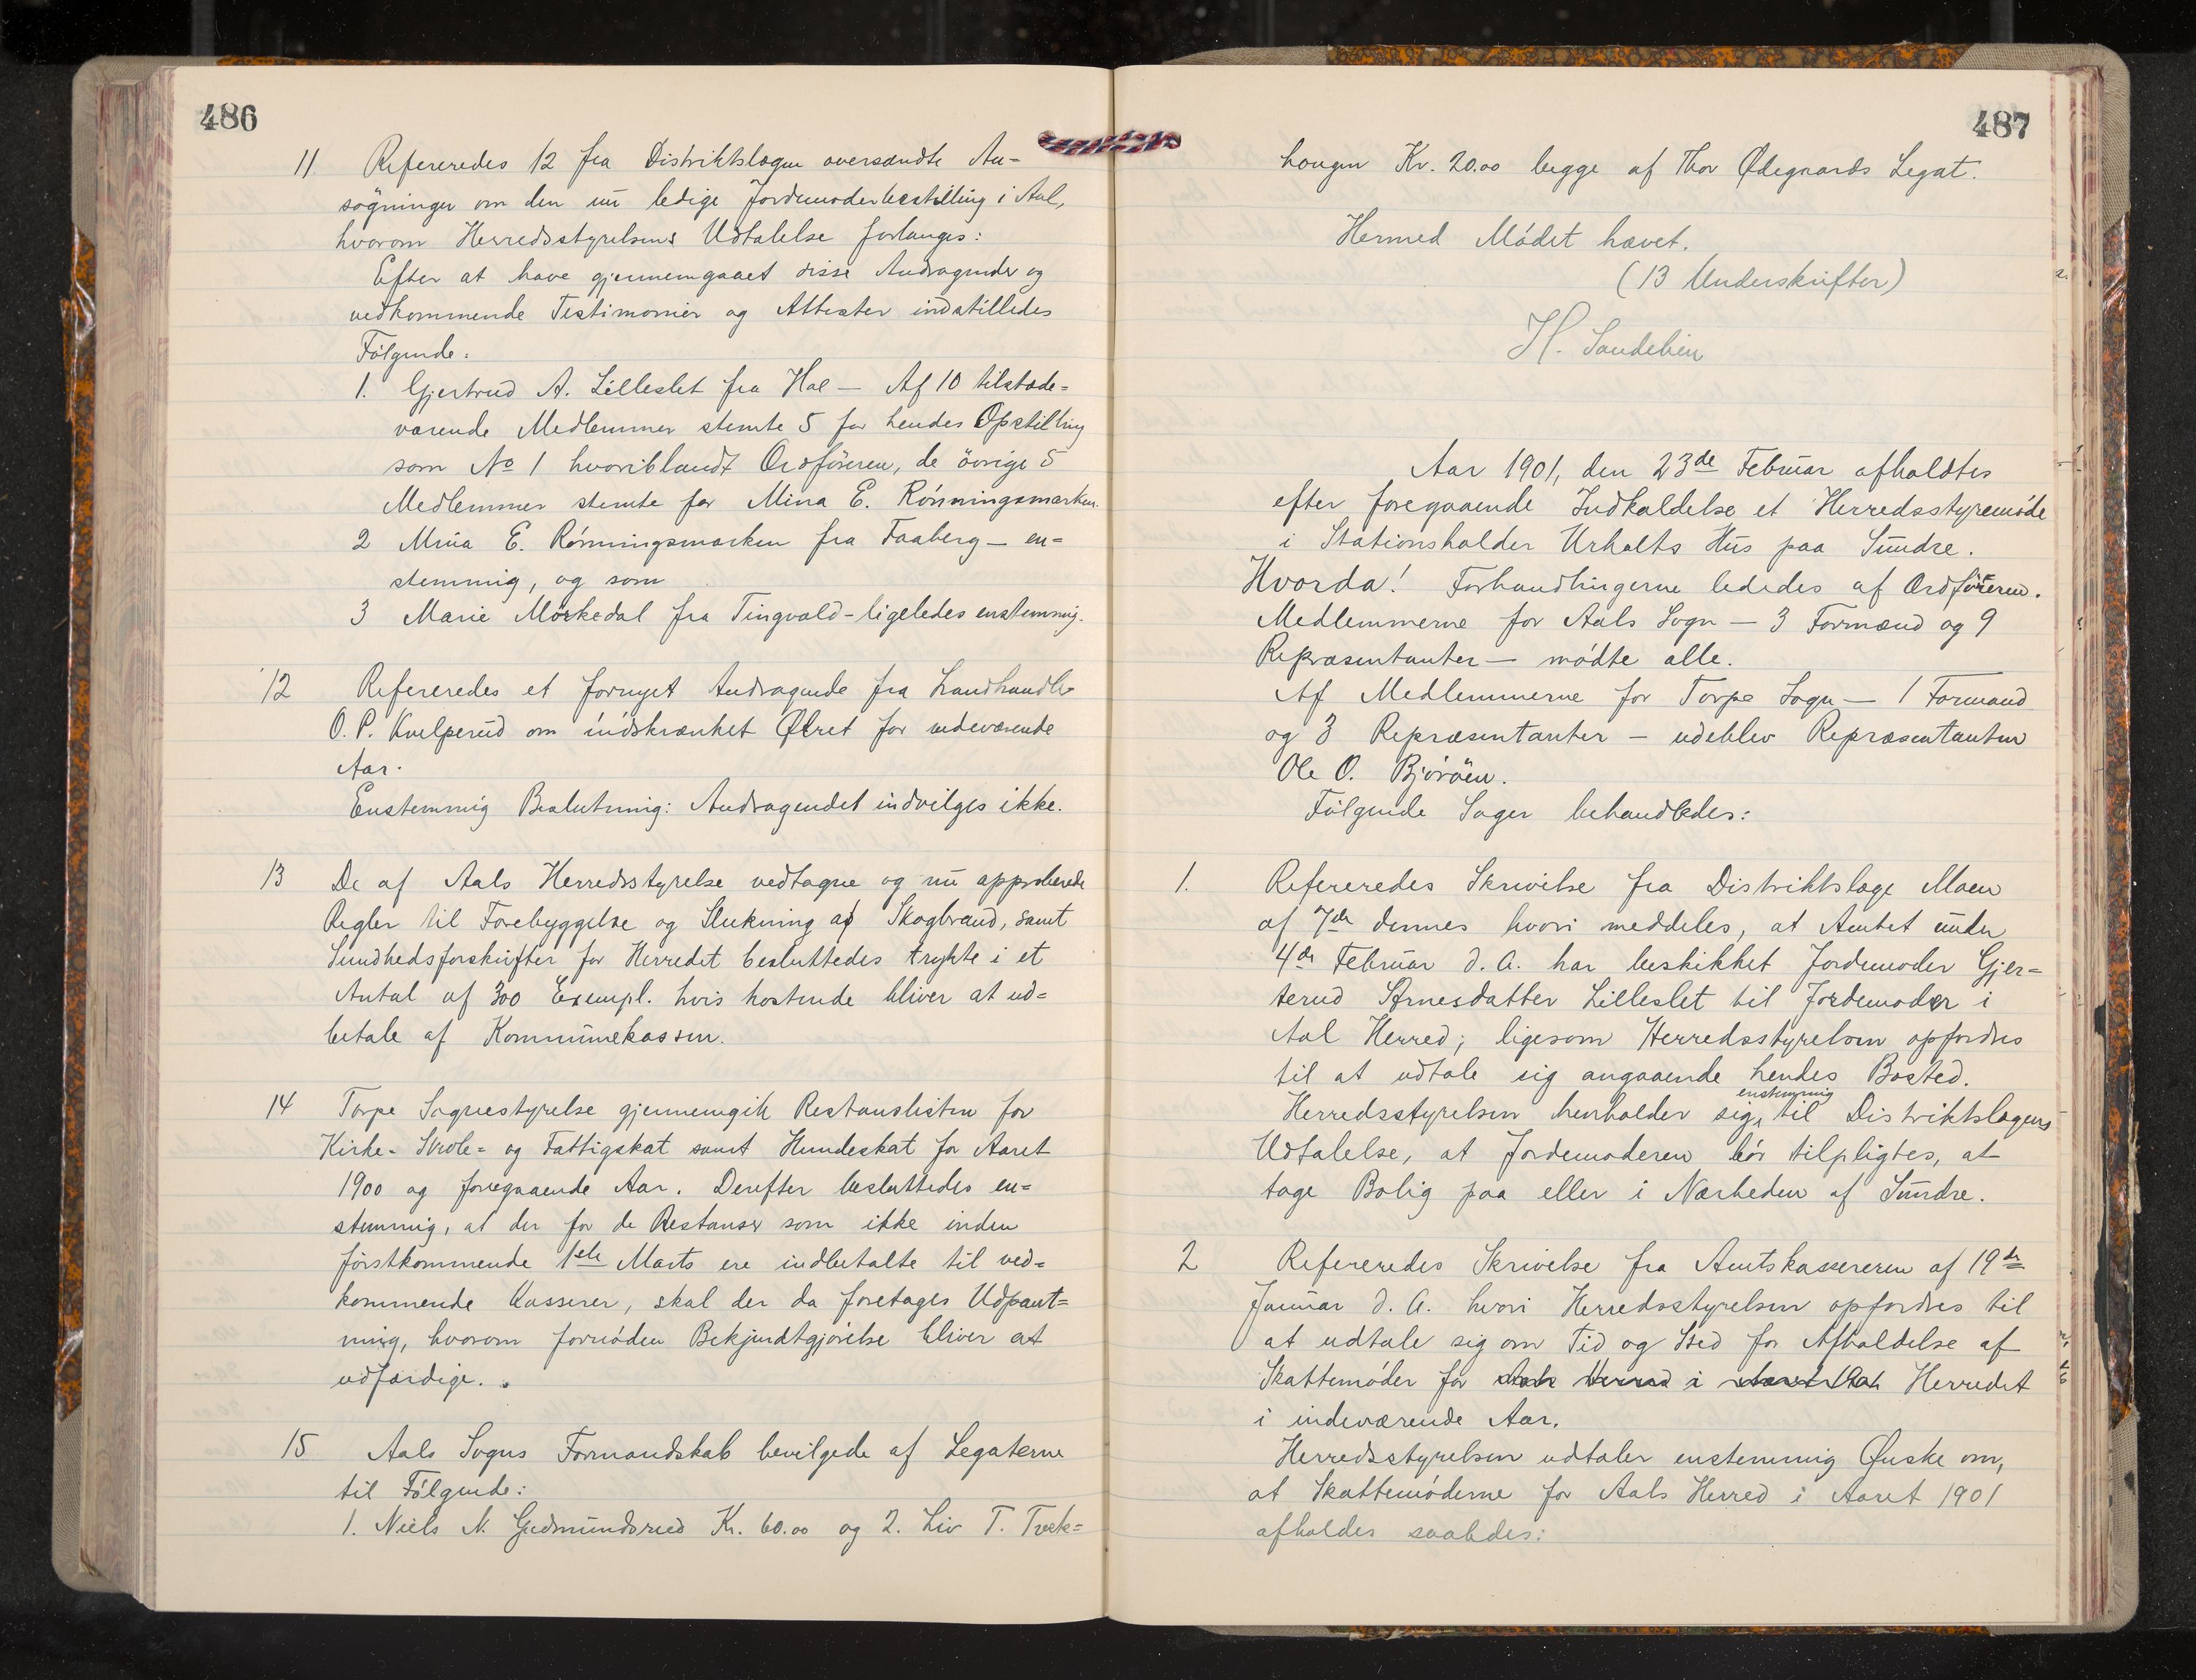 486
11 Refereredes 12 fra Distriktslægen oversendte An=
søgninger om den nu ledige Jordemoderbestilling i Aal,
hvorom Herredsstyrelsens Udtalelse forlanges:
Efter at have gjennemgaaet disse Andragender og
vedkommende Testimonier og Attester indstilledes
Følgende:
1. Gjertrud A. Lilleslet fra Hol — Af 10 tilstede=
værende Medlemmer stemte 5 for hendes Opstilling
som No 1 hvoriblandt Ordføreren, de øvrige 5
Medlemmer stemte for Mina E. Rønningsmarken.
2 Mina E. Rønningsmarken fra Faaberg — en=
stemmig, og som
3 Marie Mørkedal fra Tingvold - ligeledes enstemmig.
12 Refereredes et fornyet Andragende fra Landhandler
O. P. Kvelprud om indskrænket Ølret for indeværende
Aar.
Enstemmig Beslutning: Andragendet indvilges ikke.
13 De af Aals Herredsstyrelse vedtagne og nu approberede
Regler til Forebyggelse og Slukning af Skogbrand, samt
Sundhedsforskrifter for Herredet besluttedes trykte i et
Antal af 300 Exempl. hvis kostende bliver at ud=
betale af Kommunekassen.
14 Torpe Sognestyrelse gjennemgik Restanslisten for
Kirke- Skole= og Fattigskat samt Hundeskat for Aaret
1900 og foregaaende Aar. Derefter besluttedes en=
stemmig, at der for de Restanser som ikke inden
førstkommende 1ste Marts ere indbetalte til ved=
kommende Kasserer, skal der da foretages Udpant=
ning, hvorom fornøden Bekjendtgjørelse bliver at
udfærdige.
15 Aals Sogns Formandskab bevilgede af Legaterne
til Følgende:
1. Niels N. Gudmundsrud Kr. 60.00 og 2. Liv T. Træk=
487
haugen Kr. 20.00 begge af Thor Ødegaards Legat.
Hermed Mødet hævet.
(13 Underskrifter)
H. Sandelien
Aar 1901, den 23de Februar afholdtes
efter foregaaende Indkaldelse et Herredsstyremøde
i Stationsholder Urholts Hus paa Sundre.
Hvorda! Forhandlingerne lededes af Ordføreren.
Medlemmerne for Aals Sogn — 3 Formænd og 9
Repræsentanter — mødte alle.
Af Medlemmerne for Torpe Sogn — 1 Formand
og 3 Repræsentanter — udeblev Repræsentanten
Ole O. Bjørøen.
Følgende Sager behandledes:
1. Refereredes Skrivelse fra Distriktslæge Moen
af 7de dennes hvori meddeles, at Amtet under
4de Februar d. A. har beskikket Jordemoder Gjer=
terud Arnesdatter Lilleslet til Jordemoder i
Aal Herred; ligesom Herredsstyrelsen opfordres
til at udtale sig angaaende hendes Bosted.
enstemmig
Herredsstyrelsen henholder sig, til Distriktslægens
Udtalelse, at Jordemoderen bør tilpligtes, at
tage Bolig paa eller i Nærheden af Sundre.
2 Refereredes Skrivelse fra Amtskassereren af 19de
Januar d. A. hvori Herredsstyrelsen opfordres til
at udtale sig om Tid og Sted for Afholdelse af
Skattemøder for Aals Herred i Aaret 1901 Herredet
i indeværende Aar.
Herredsstyrelsen udtaler enstemmig Ønske om,
at Skattemøderne for Aals Herred i Aaret 1901
afholdes saaledes: